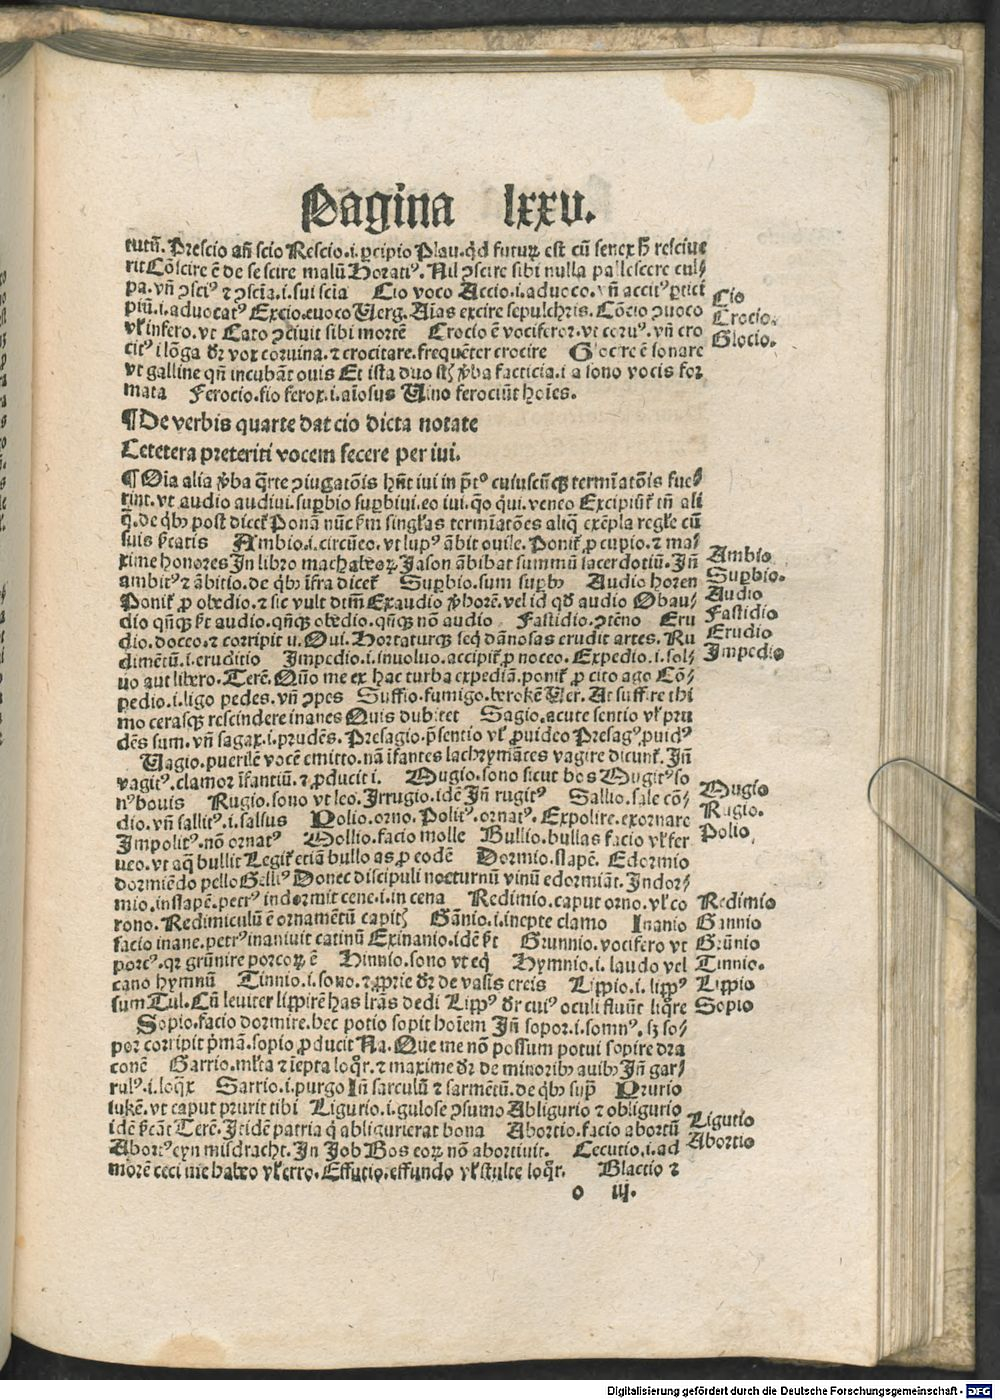 Pagina lxxv.
tutū. Prescio añ scio Rescio.i.ꝑcipio Plau.qd futuꝝ est cū senex resciue
rit Cōscire ē de se scire malū Horatiꝰ. Nil ꝯscire sibi nulla pallescere cul⸗
pa.vñ ꝯsciꝰ ⁊ ꝯscīa.i.sui scia Cio voco Accio.i.aduoco.vñ accitꝰ ꝑtici
piū.i.aduocatꝰ Excio.euoco Uerg. Aias excire sepulchris. Cōcio ꝯuoco
vł infero.vt Cato ꝯciuit sibi mortē Crocio ē vociferor.vt coruꝰ.vñ cro
citꝰ i lōga dr vox coruina.⁊ crocitare.frequēter crocire Glocire ē sonare
vt galline qñ incubāt ouis Et ista duo sꝫ ꝟba facticia.i a sono vocis for
mata Ferocio.fio ferox.i.aīosus Uino ferociūt hoīes.
¶ De verbis quarte dat cio dicta notate
Cetetera preteriti vocem fecere per iui.
¶ Oīa alia ꝟba q̄rte ꝯiugatōis hñt iui in p̄tꝰ cuiuscūqꝫ termīatōis fue⸗
rint.vt audio audiui.suꝑbio suꝑbiui.eo iui.q̄o q̄ui.veneo Excipiūt tñ ali
q̄.de qbꝰ post dicet Ponā nūc sm singłas termīatōes aliq̄ exēpla regłe cū
suis sīcatis Ambio.i.circūeo.vt lupꝰ ābit ouile. Ponit ꝓ cupio.⁊ ma⸗
xime honores In libro machabeoꝝ. Jason ābibat summū sacerdotiū. Jñ
ambitꝰ ⁊ ābitio.de qbꝰ īfra dicet Suꝑbio.sum suꝑbꝰ Audio horen
Ponit ꝓ obedio.⁊ sic vult dtm̄ Exaudio ꝟhorē.vel id qd audio Obau⸗
dio qñqꝫ st audio.qñqꝫ obedio.qñqꝫ nō audio Fastidio.ꝯtēno Eru
dio.doceo.⁊ corripit u. Oui. Hortaturqꝫ seq dānosas erudit artes. Ru
dimētū.i.eruditio Impedio.i.inuoluo.accipit ꝓ noceo. Expedio.i.sol⸗
uo aut libero. Terē. Qūo me ex hac turba expediā.ponit ꝓ cito ago Cō⸗
pedio.i.ligo pedes.vñ ꝯpes Suffio.fumigo.berokē Uer. At suffire thi
mo cerasqꝫ rescindere inanes Quis dubitet Sagio.acute sentio vł pru
dēs sum.vñ sagax.i.prudēs. Presagio.p̄sentio vł ꝓuideo Presagꝰ.ꝓuidꝰ
Uagio.puerilē vocē emitto.nā īfantes lachrymātes vagire dicunt. Jñ
vagitꝰ.clamor īfantiū.⁊ ꝓducit i. Mugio.sono sicut bos Mugitꝰ so
nꝰ bouis Rugio.sono vt leo. Irrugio.idē Jñ rugitꝰ Sallio.sale cō⸗
dio.vñ sallitꝰ.i.salsus Polio.orno. Politꝰ.ornatꝰ. Expolire.exornare
Impolitꝰ.nō ornatꝰ Mollio.facio molle Bullio.bullas facio vł fer
ueo.vt aq̄ bullit Legit etiā bullo as ꝓ eodē Dormio.slapē. Edormio
dormiēdo pello Gelliꝰ Donec discipuli nocturnū vinū edormiāt. Indor⸗
mio.inslapē.petrꝰ indormit cene.i.in cena Redimio.caput orno.vł co
rono. Redimiculū ē ornamētū capitꝭ Gānio.i.inepte clamo Inanio
facio inane.petrꝰ inaniuit catinū Exinanio.idē st Grunnio.vocifero vt
porcꝰ.qr grūnire porcoꝝ ē Hinnio.sono vt eqꝰ Hymnio.i.laudo vel
cano hymnū Tinnio.i.sono.⁊ ꝓprie dr de vasis ereis Lippio.i.lippꝰ
sum Tul. Cū leuiter lippirē has lrās dedi Lippꝰ dr cuiꝰ oculi fluūt liq̄re
Sopio.facio dormire.hec potio sopit hoīem Jñ sopor.i.somnꝰ.sꝫ so⸗
por corripit p̄mā.sopio ꝓducit Na. Que me nō possum potui sopire dra
conē Garrio.młta ⁊ īepta loq̄r.⁊ maxime dr de minoribꝰ auibꝰ Jñ gar⸗
rulꝰ.i.loq̄x Sarrio.i.purgo Jñ sarculū ⁊ sarmētū.de qbꝰ suꝑ Prurio
iukē.vt caput prurit tibi Ligurio.i.gulose ꝯsumo Abligurio ⁊ obligurio
idē sīcāt Terē. Itidē patria q̄ abligurierat bona Abortio.facio abortū
Abortꝰ eyn misdracht. In Job Bos eoꝝ nō abortiuit. Cecutio.i.ad
morē ceci me habeo vł erro. Effutio.effundo vł stulte loq̄r. Blactio ⁊
o iij.
Cio
Crocio.
Glocio.
Ambio
Suꝑbio.
Audio
Fastidio
Erudio
Impedio
Mugio
Rugio.
Polio
Redimio
Gannio
Grūnio
Tinnio.
Lippio
Sopio
Ligutio
Abortio
Digitalisierung gefördert durch die Deutsche Forschungsgemeinschaft - DFG